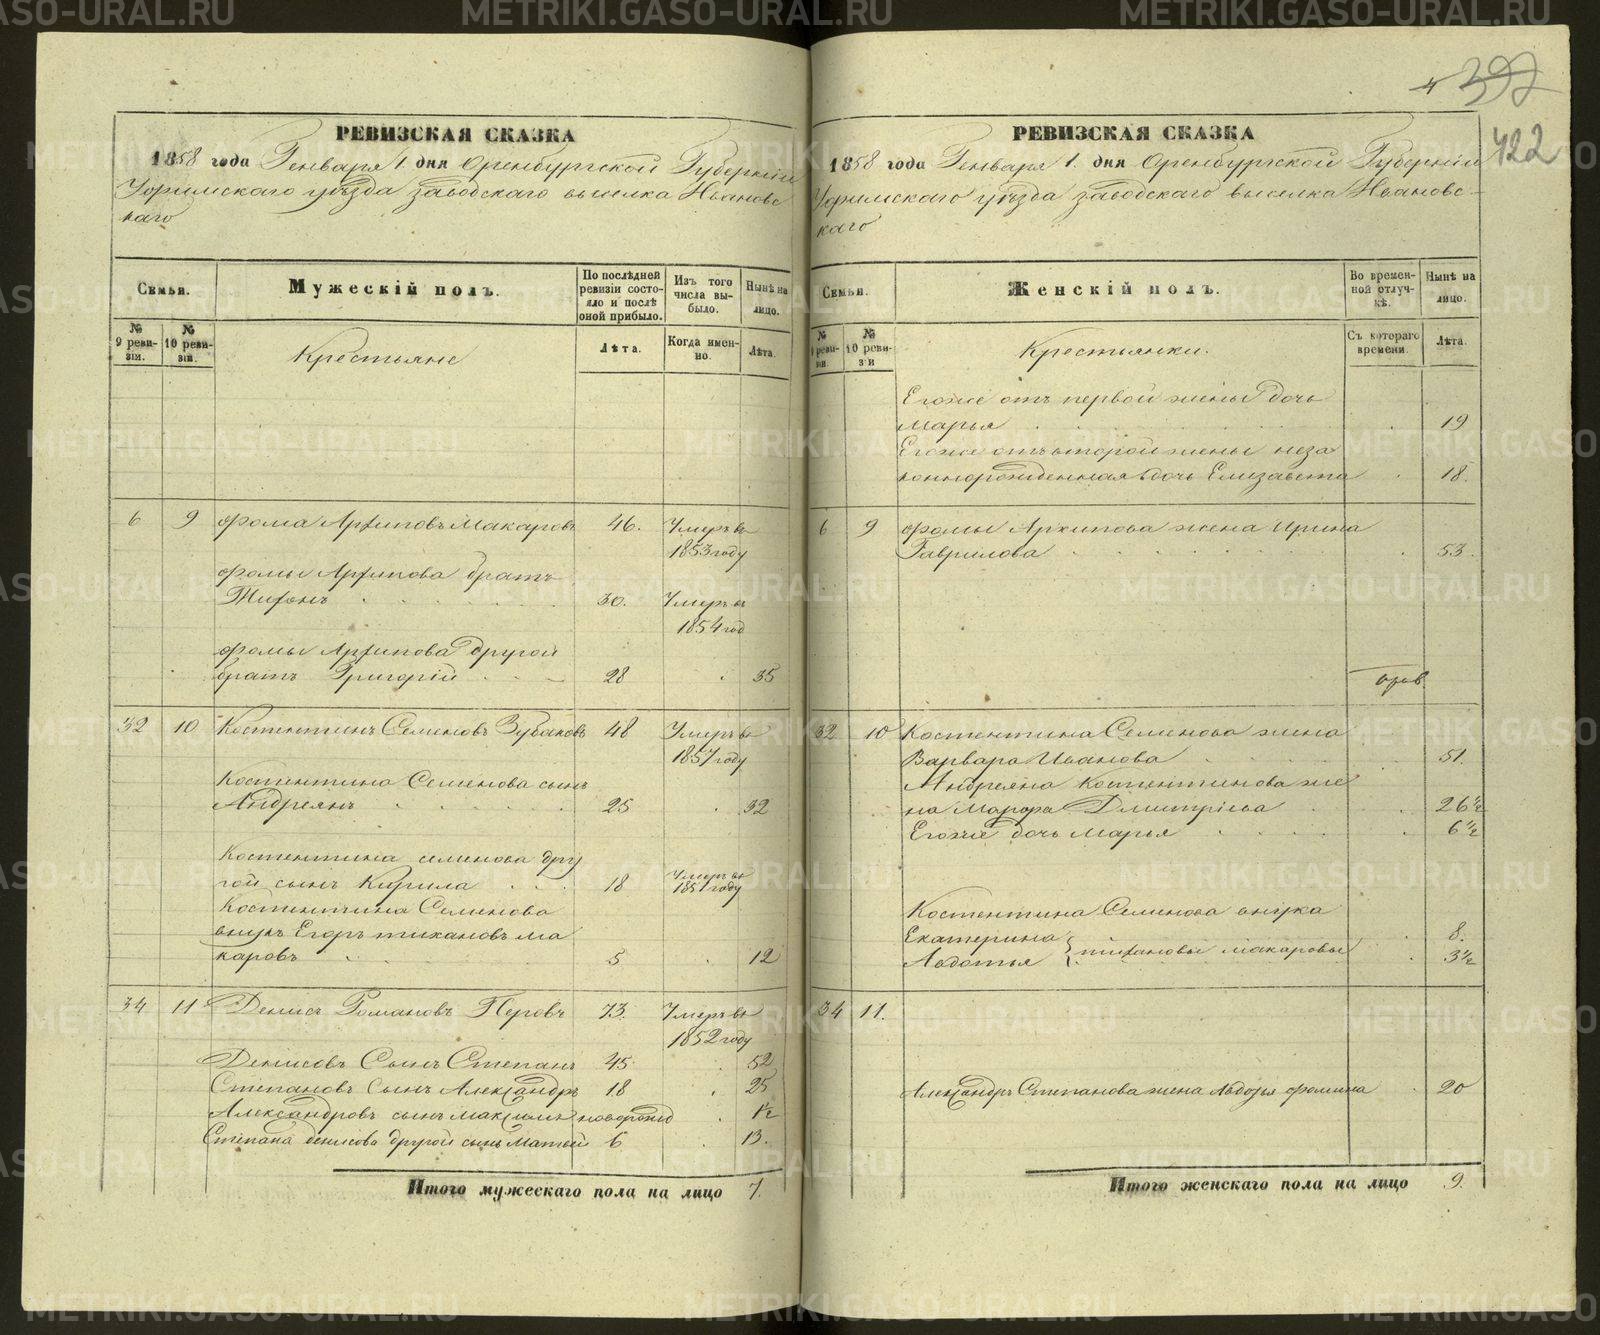 4 392
422
РЕВИЗСКАЯ СКАЗКА
1858 года Генваря 1. дня Оренбургской Губернiи
уѣзда заводскаго выселка Ивановс
каго
Семьи.
Мужескiй полъ.
По послѣдней ревизiи состояло и послѣ оной прибыло.
Изъ того числа выбыло.
Нынѣ на лицо.
№ 9 ревизiи.
№ 10 ревизiи.
Крестьяне
Лѣта.
Когда именно.
Лѣта.
6 9 Фома Архиповъ Макаровъ 46. Умеръ въ
1853 году
Фомы Архипова братъ
Тихонъ 30. Умеръ въ
1854 год
Фомы Архипова другой
братъ Григорiй 28 35
32 10 Костентинъ Семеновъ Зубаковъ 48 Умеръ въ
1857 году
Костентина Семенова сынъ
Андреянъ 25 32
Костентина Семенова дру
гой сынъ Кирила 18 Умеръ въ
1851 году
Костентина Семенова
внукъ Егоръ Тихановъ Ма
каровъ 5 12
34 11 Денисъ Романовъ Перовъ 73. Умеръ въ
1852 году
Денисовъ Сынъ Степанъ 45 52
Степановъ Сынъ Александръ 18 25
Александровъ сынъ Максимъ новорожд 1 1/2
Степана Денисова другой сынъ Матвей 6 13.
Итого мужескаго пола на лицо 7.
РЕВИЗСКАЯ СКАЗКА
1858 года Генваря 1. дня Оренбургской Губернiи
уѣзда заводскаго выселка Ивановс-
каго
Семьи.
Женскiй полъ.
Во временной отлучкѣ.
Нынѣ на лицо.
№ 9 ревизiи.
№ 10 ревизiи
Крестьянки.
Съ котораго времени.
Лѣта.
Егоже отъ первой жены дочь
Марья 19
Егоже отъ второй жены неза
коннорожденная дочь Елизавета 18.
6 9 Фомы Архипова жена Ирина
Гаврилова 53.
32 10 Костентина Семенова жена
Варвара Иванова 51.
Андреяна Костентинова же
на Марфа Дмитрiева 26 1/2
Егоже дочь Марья 6 1/2
Костентина Семенова внука
Екатерина 8.
Авдотья } Тихановы Макаровы 3 1/2
34 11.
Александръ Степанова жена Авдотья Фомина 20
Итого женскаго пола на лицо 9.
METRIKI.GASO-URAL.RU